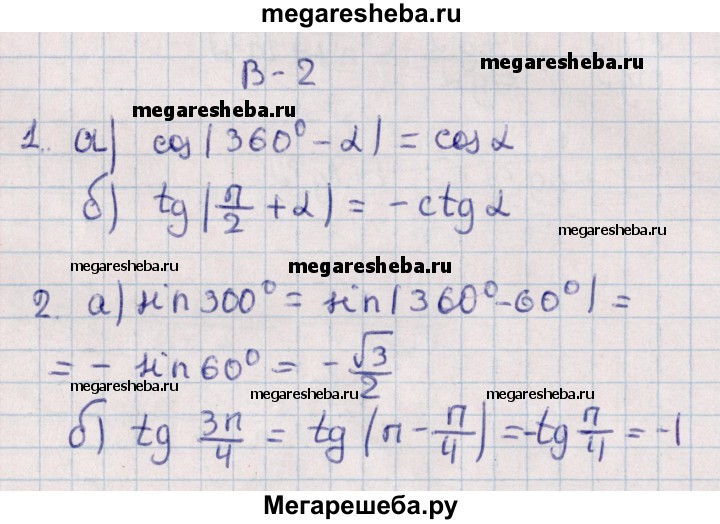 megaresheba.ru
В - 2
megaresheba.ru
megaresheba.ru
1. а) cos(360° - α) = cos α
б) tg(π/2 + α) = - ctg α
megaresheba.ru
megaresheba.ru
megaresheba.ru
2. а) sin 300° = sin(360° - 60°) =
= - sin 60° = - √3/2
megaresheba.ru
megaresheba.ru
megaresheba.ru
б) tg 3π/4 = tg(π - π/4) = -tg π/4 = -1
Мегарешеба.ру